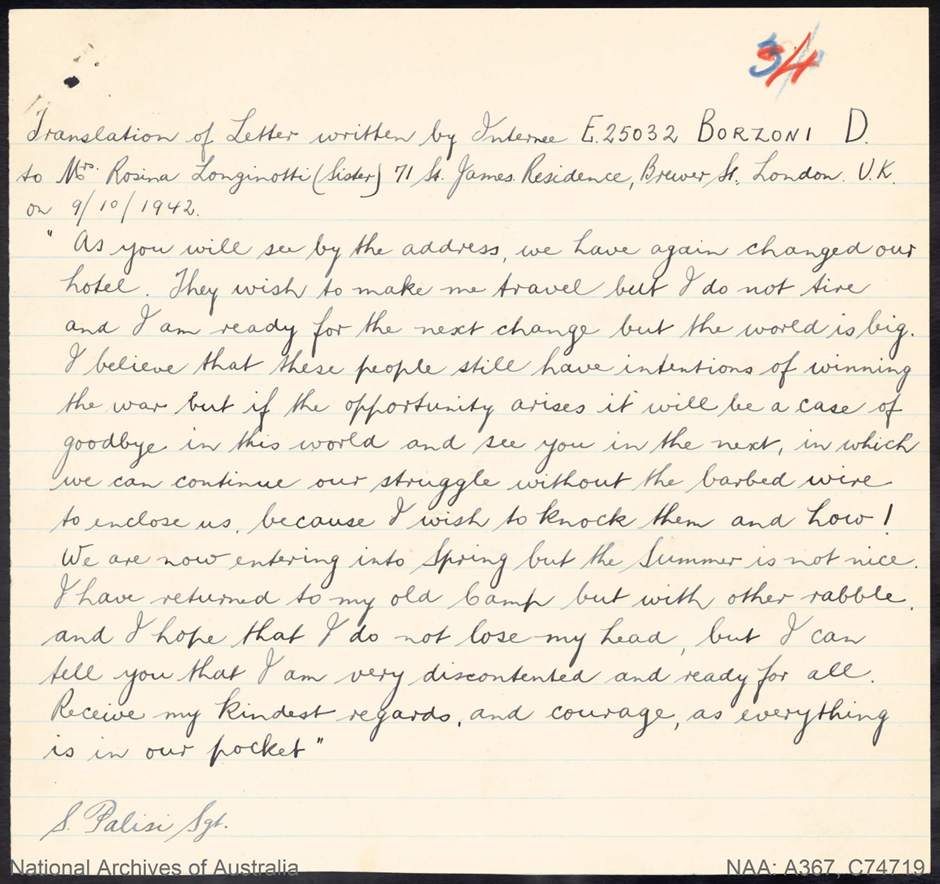 34
Translation of Letter written by Internee E.25032 BORZONI D.
to Mrs. Rosina Longinotti (Sister) 71 St. James Residence, Brewer St. London. U.K.
on 9/10/1942.
"As you will see by the address, we have again changed our
hotel. They wish to make me travel but I do not tire
and I am ready for the next change but the world is big.
I believe that these people still have intentions of winning
the war but if the opportunity arises it will be a case of
goodbye in this world and see you in the next, in which
we can continue our struggle without the barbed wire
to enclose us, because I wish to knock them and how!
We are now entering into Spring but the Summer is not nice.
I have returned to my old Camp but with other rabble,
and I hope that I do not lose my head, but I can
tell you that I am very discontented and ready for all.
Receive my kindest regards, and courage, as everything
is in our pocket"
S. Palisi Sgt.
National Archives of Australia
NAA: A367, C74719